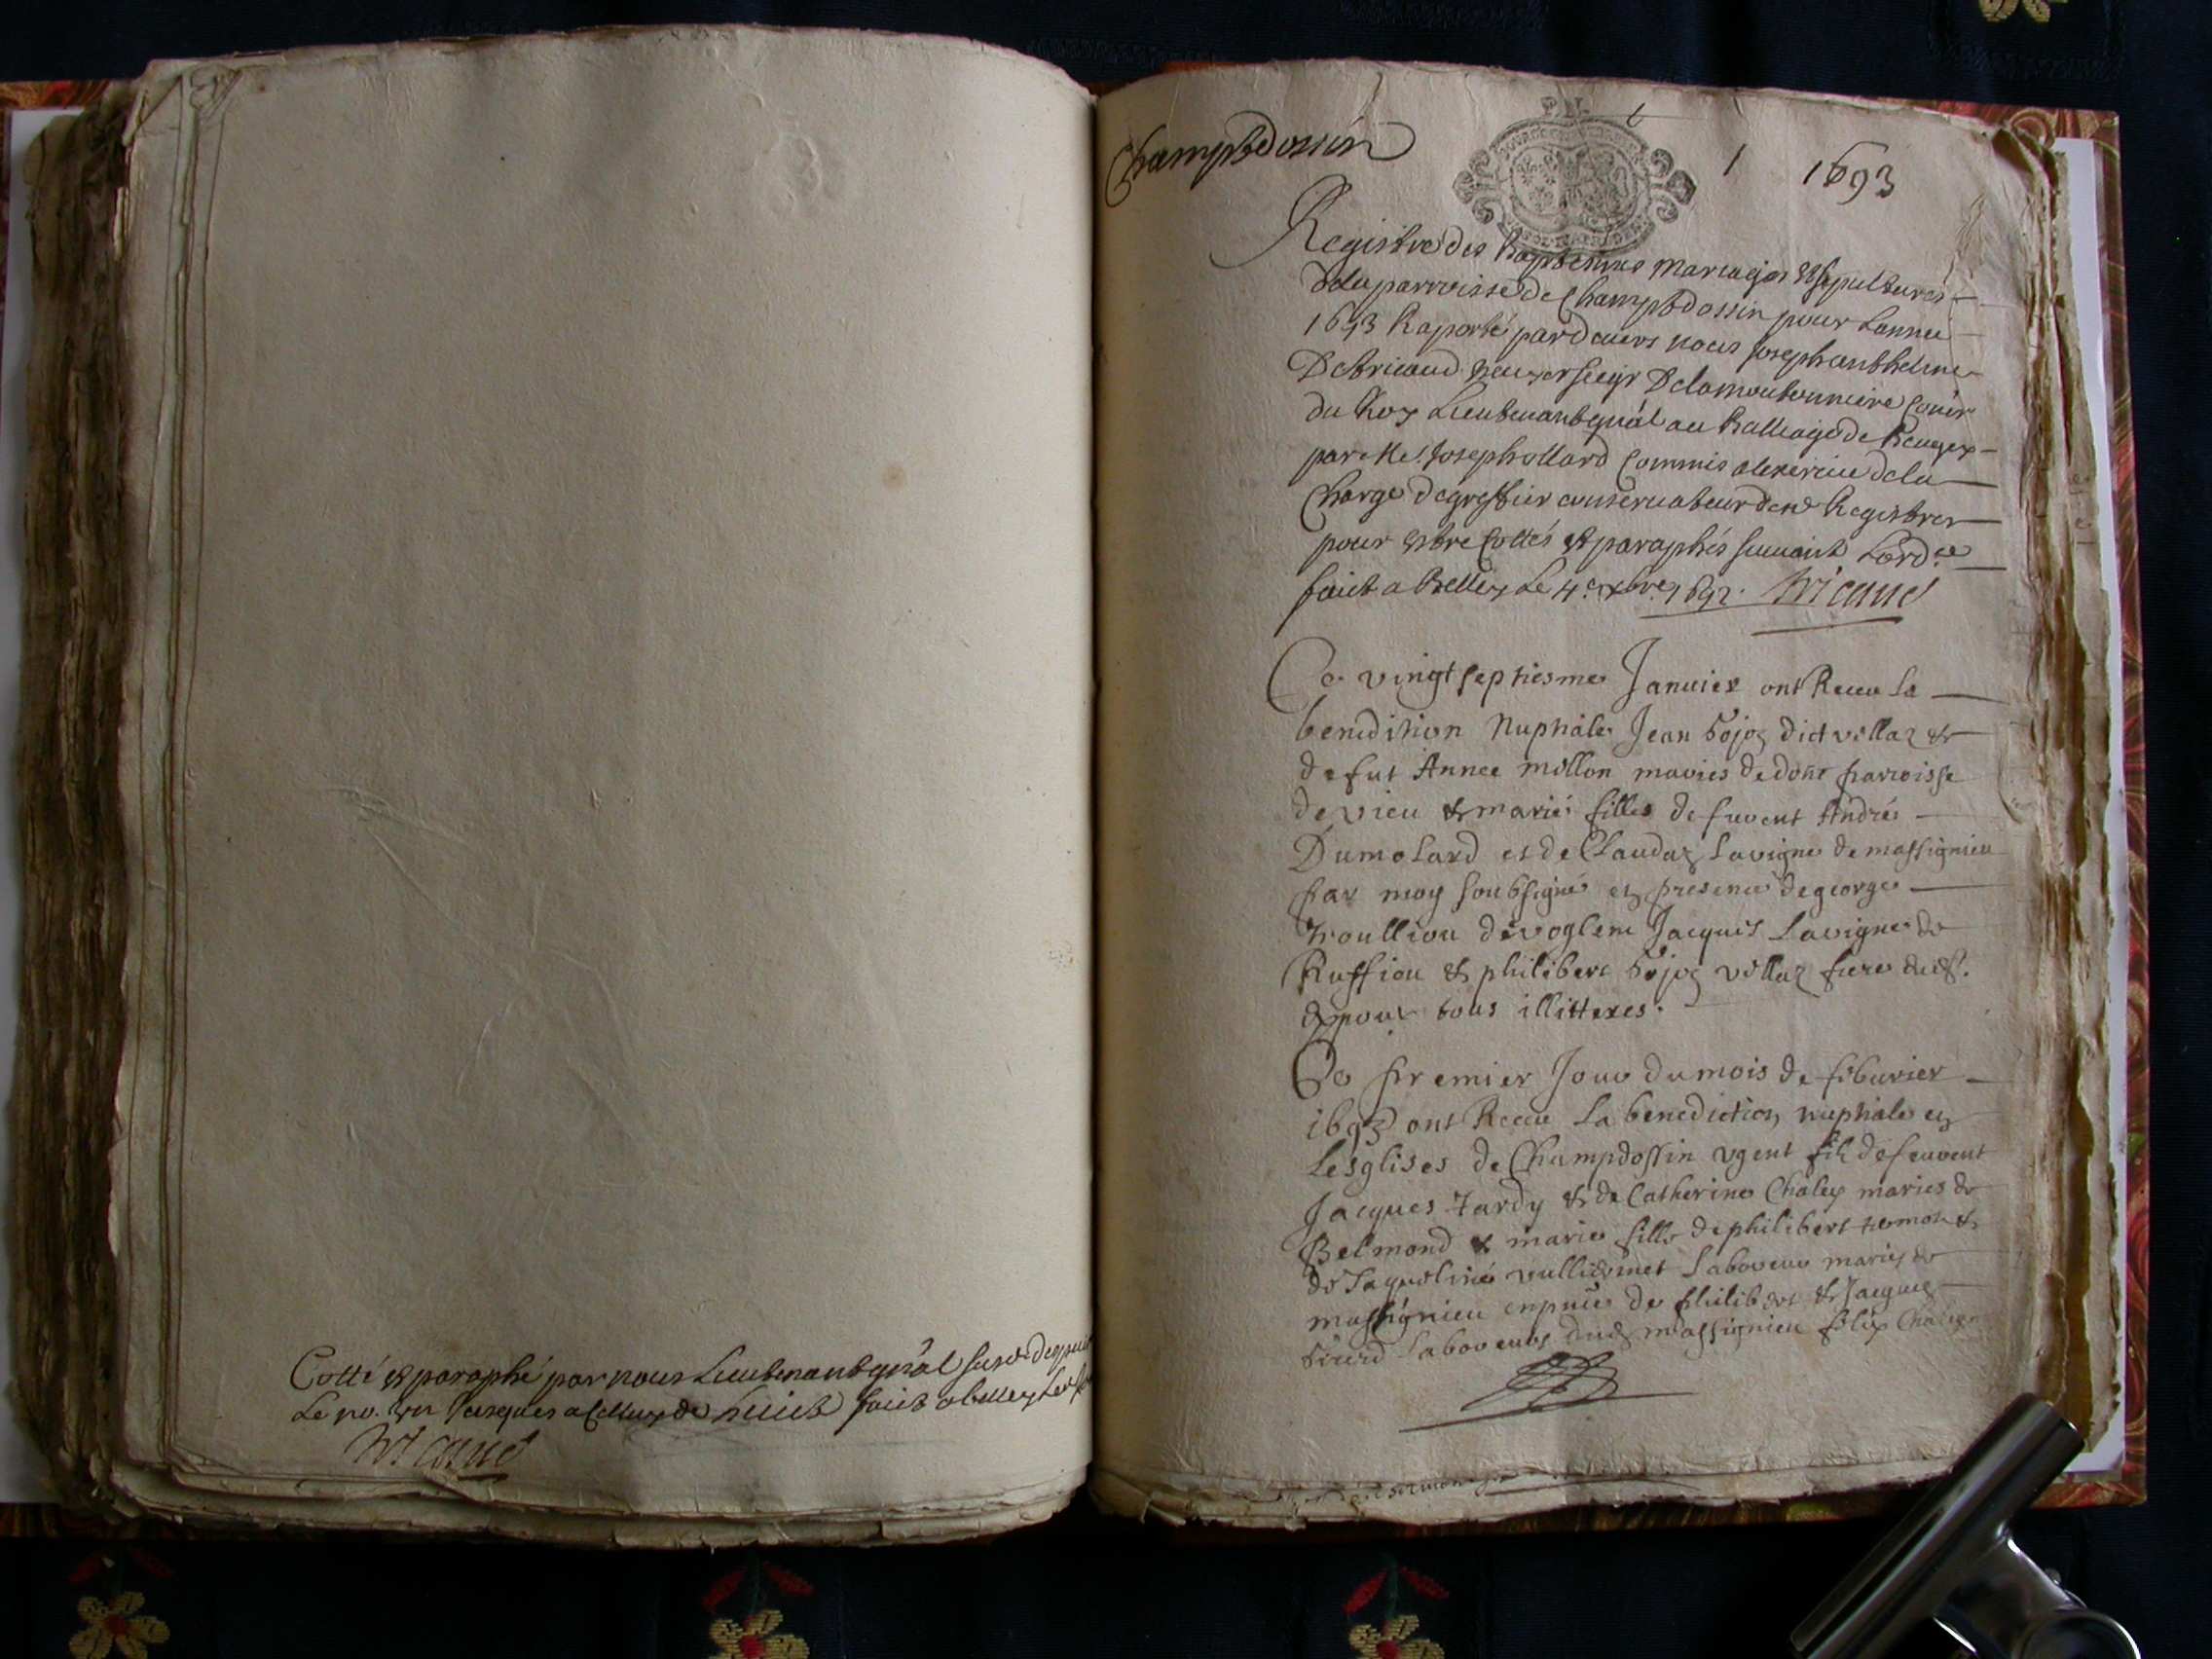 Cotté et paraphé par nous Lieutenant gnâl susd.
Le no. un jusques a Celluy de huict faict a belley
Bricaud
Champdossin
1 1693
Registre des Baptesmes Mariages et sepultures
De la parroisse de Champdossin pour Lannee
1693 Raporté pardevers nous Joseph anthelme
De bricaud Delamoutonniere
du Roy Lieutenant gnâl au Balliage de Beugey
par Me. Joseph ollard Commis a lexercice dela
Charge de greffier conservateur desd Registres
pour estre Cottés et paraphés suivant Lordce
faict a Belley Le 4e xbre 1692. Bricaud
Ce vingt septiesme Januier ont Receu la
benedition Nuptiale Jean dict villaz &
defut Annee millon maries de parroisse
de vieu & marie fille de fuvent André
Dumolard et de Claudaz Lavigne de massignieu
par moy soubsigné en presence de george
troulliou de voglem Jacques Lavigne de
Ruffiou & philibert villaz frere
& pour tous illitteres.
Ce premier Jour du mois de feburier
1693 ont Receu La benediction nuptiale en
Lesglises de Champdossin vgent filz de feuvent
Jacques Tardy & de Catherine Chaley maries de
Belmond & marie fille de philibert &
de Jaqueline Laboveur maries de
massignieu de philibert & Jacques
Laboveurs dud massignieu